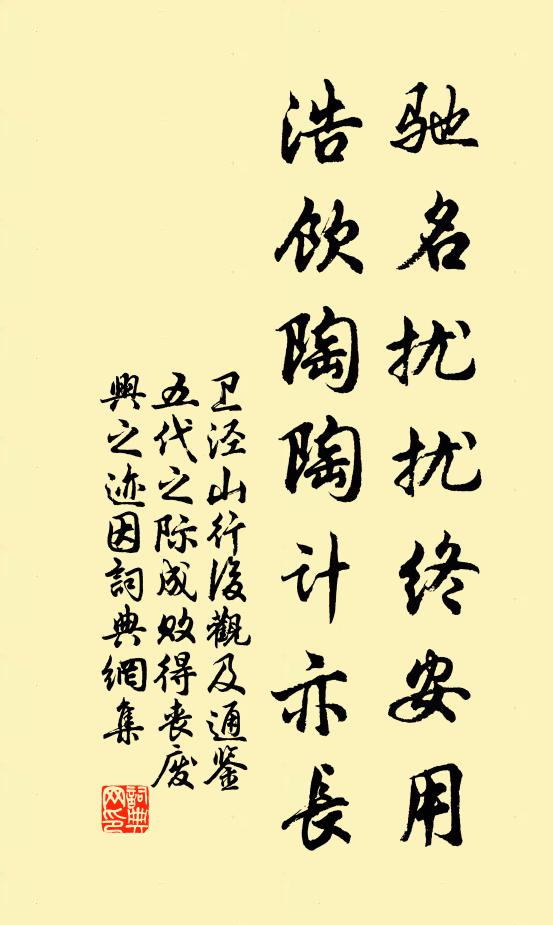 驰名扰扰终安用
浩饮陶陶计亦長
卫泾山行後觀及通鉴
五代之际成败得丧废
興之迹因詞典網集
詞典网印